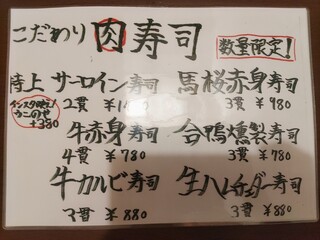 こだわり 肉寿司
数量限定！
特上 サーロイン寿司
2貫
うこのせ
+380
馬桜赤身寿司
3貫 ￥980
牛赤身寿司
4貫 ￥780
合鴨燻製寿司
3貫 ￥780
牛カルビ寿司
3貫 ￥880
生ハムチェダー寿司
3貫 ￥880